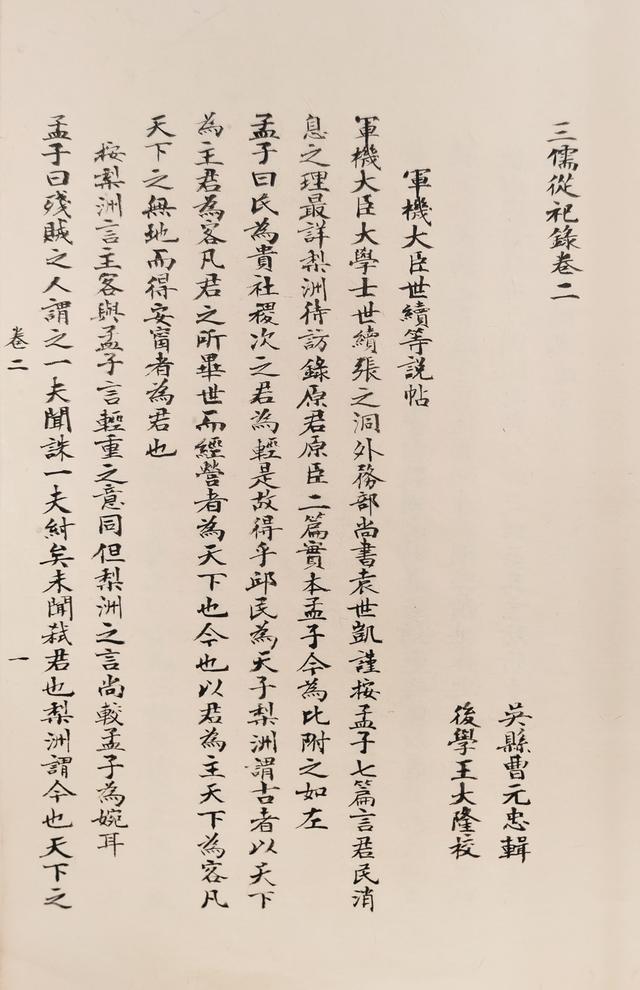 三儒從祀錄卷二
吳縣曹元忠輯
後學王大隆校
軍機大臣世續等說帖
軍機大臣大學士世續張之洞外務部尚書袁世凱謹按孟子七篇言君民消
息之理最詳梨洲待訪錄原君原臣二篇實本孟子今為比附之如左
孟子曰民為貴社稷次之君為輕是故得乎邱民為天子梨洲謂古者以天下
為主君為客凡君之所畢世而經營者為天下也今也以君為主天下為客凡
天下之無地而得安甯者為君也
按梨洲言主客與孟子言輕重之意同但梨洲之言尚較孟子為婉耳
孟子曰殘賊之人謂之一夫聞誅一夫紂矣未聞弒君也梨洲謂今也天下之
卷二
一